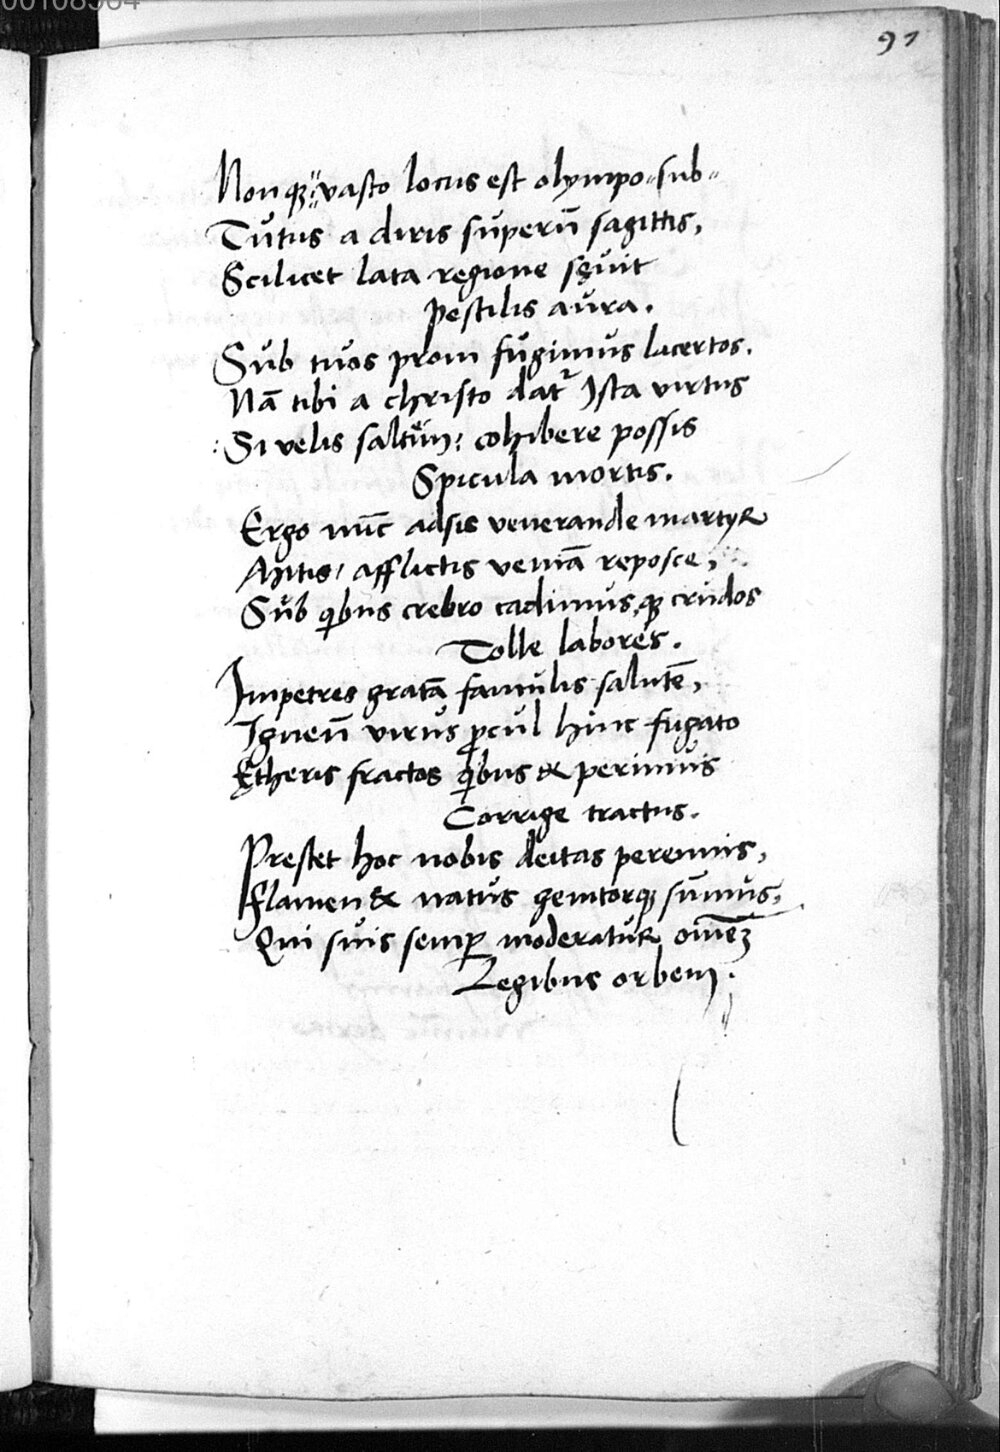 00108564
97
Nonqꝫ vasto locus est olympo sub
Tutus a diris superū sagittis,
Scilicet lata regione sęuit
Pestilis aura.
Sub tuos proni fugimus lacertos.
Nā tibi a christo dat᷑ Ista virtus
Si velis saltem: cohibere possis
Spicula mortis.
Ergo nūc adsis venerande martyr
Mitis, afflictis veniā reposce,
Sub qibus crebro cadimus, qꝫ crudos
Tolle labores.
Impetres gratā famulis salutē,
Igneū virus ꝓcul hinc fugato
Ętheris fractos qibus & perimus
Corrige tractus.
Prestet hoc nobis deitas perennis,
Flamen & natus genitorqꝫ summus,
Qui suis semꝑ moderatur omēꝫ
Legibus orbem.